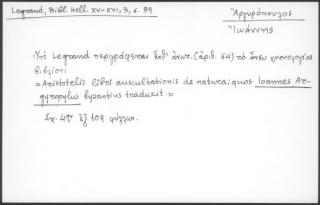 Legrand, Bibl. Hell. XV-XVI, 3, σ. 89
Ἀργυρόπουλος
Ἰωάννης
Ὑπὸ Legrand περιγράφεται ἔνθ' ἀνωτ. (ἀριθ. 64) τὸ ἄνευ χρονολογίας
βιβλίον:
«Aristotelis libri auscultationis de natura: quos Ioannes Ar-
gyropylus byzantius traduxit.»
Σχ. 4ον ἐξ 109 φύλλων.